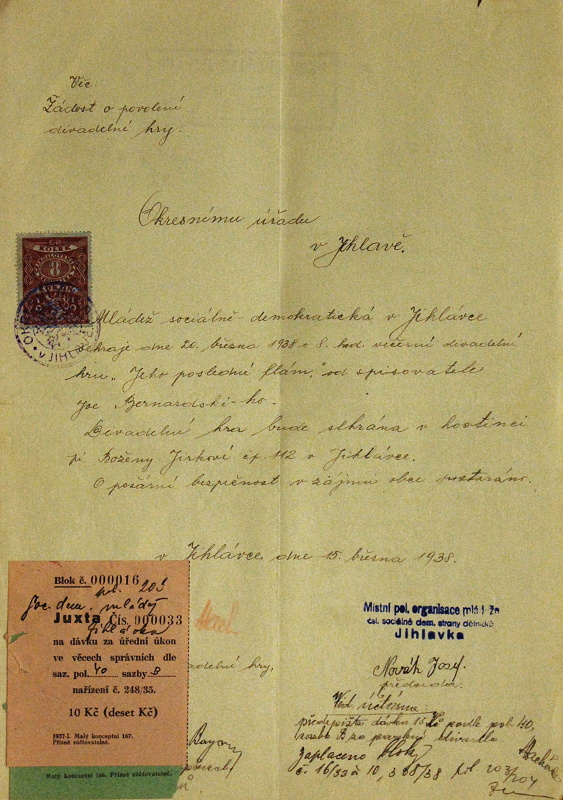 Věc:
Žádost o povolení
divadelní hry.
Okresnímu úřadu
v Jihlavě.
KOLEK
8
Mládež sociálně-demokratická v Jihlávce
sehraje dne 20. března 1938 o 8. hod. večerní divadelní
hru „Jeho poslední flám," od spisovatele
Joe Bernardski-ho.
Divadelní hra bude sehrána v hostinci
pí Boženy Jirkové čp. 112 v Jihlávce.
O požární bezpečnost v zájmu obce postaráno.
v Jihlávce dne 15. března 1938.
Blok č. 000016
pol. 203
Soc. dem. mládež
Juxta Čís. 000033
Jihlávka
na dávku za úřední úkon
ve věcech správních dle
saz. pol. 40 sazby B
nařízení č. 248/35.
10 Kč (deset Kč)
1937-I. Malý konceptní 167.
Přísně zúčtovatelné.
Malý konceptní 166. Přísně zúčtovatelné.
divadelní hry.
Místní pol. organisace mládeže
čsl. sociálně dem. strany dělnické
Jihlavka
Novák Josef
předseda.
Věd. účtárna
předepište dávku 10 Kč podle pol. 40,
sazba B za povolení divadla
Zaplaceno bloky
č. 16/33 à 10, 3 28/38 pol. 203/204